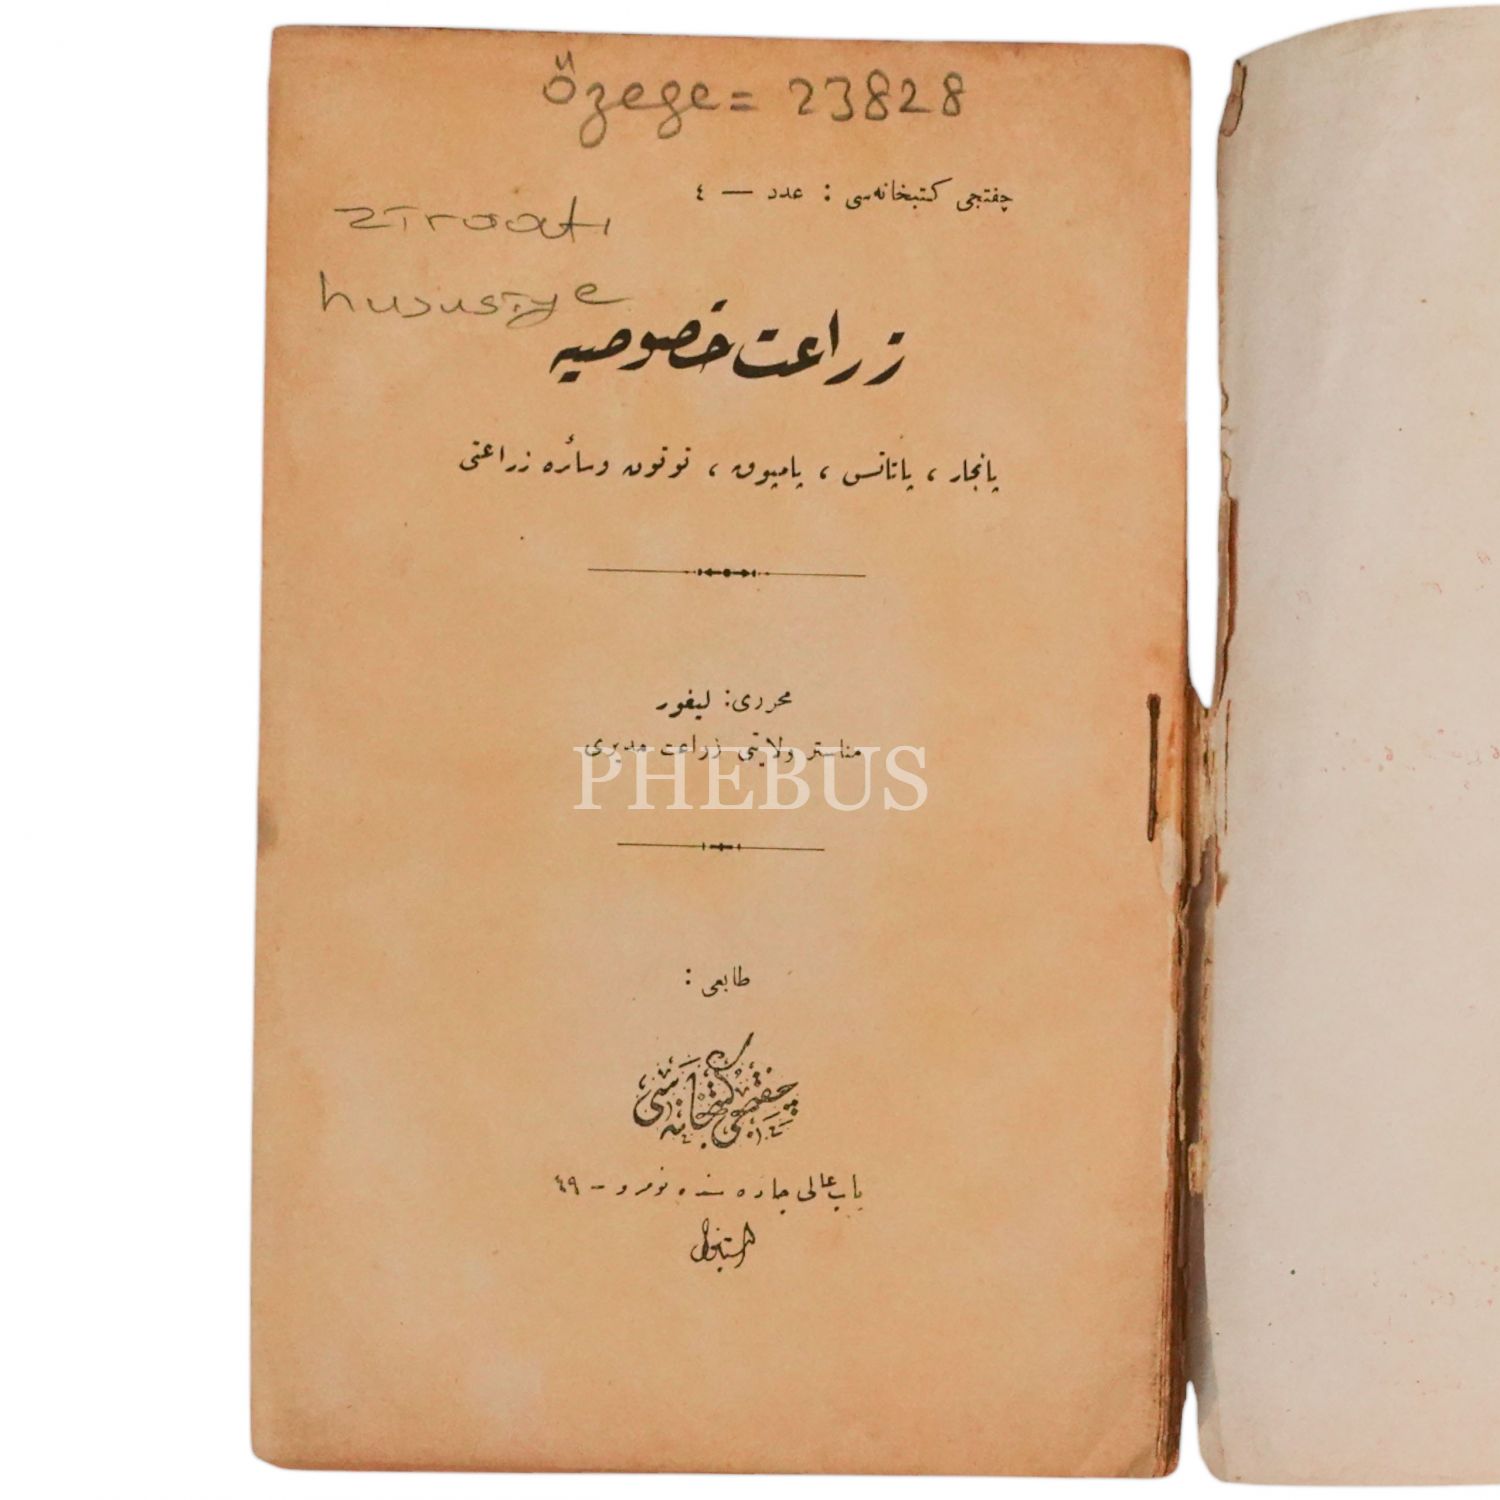 Özege = 23828
چفتجی کتبخانه‌سی : عدد — ٤
ziraatı
hususiye
زراعت خصوصیه
پانجار ، پاتاتس ، پامبوق ، توتون وسائره زراعتی
محرری: لیفور
مناستر ولایتی زراعت مدیری
PHEBUS
طابعی :
چفتجی کتبخانه‌سی
باب عالی جاده سنده نومرو – ٤٩
استانبول